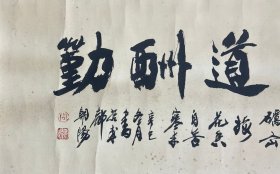 道酬勤
礪出
梅
花香
自苦
寒來
辛巳
月
書
朝陽